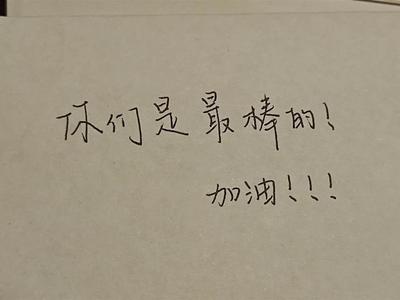 你们是最棒的!
加油!!!